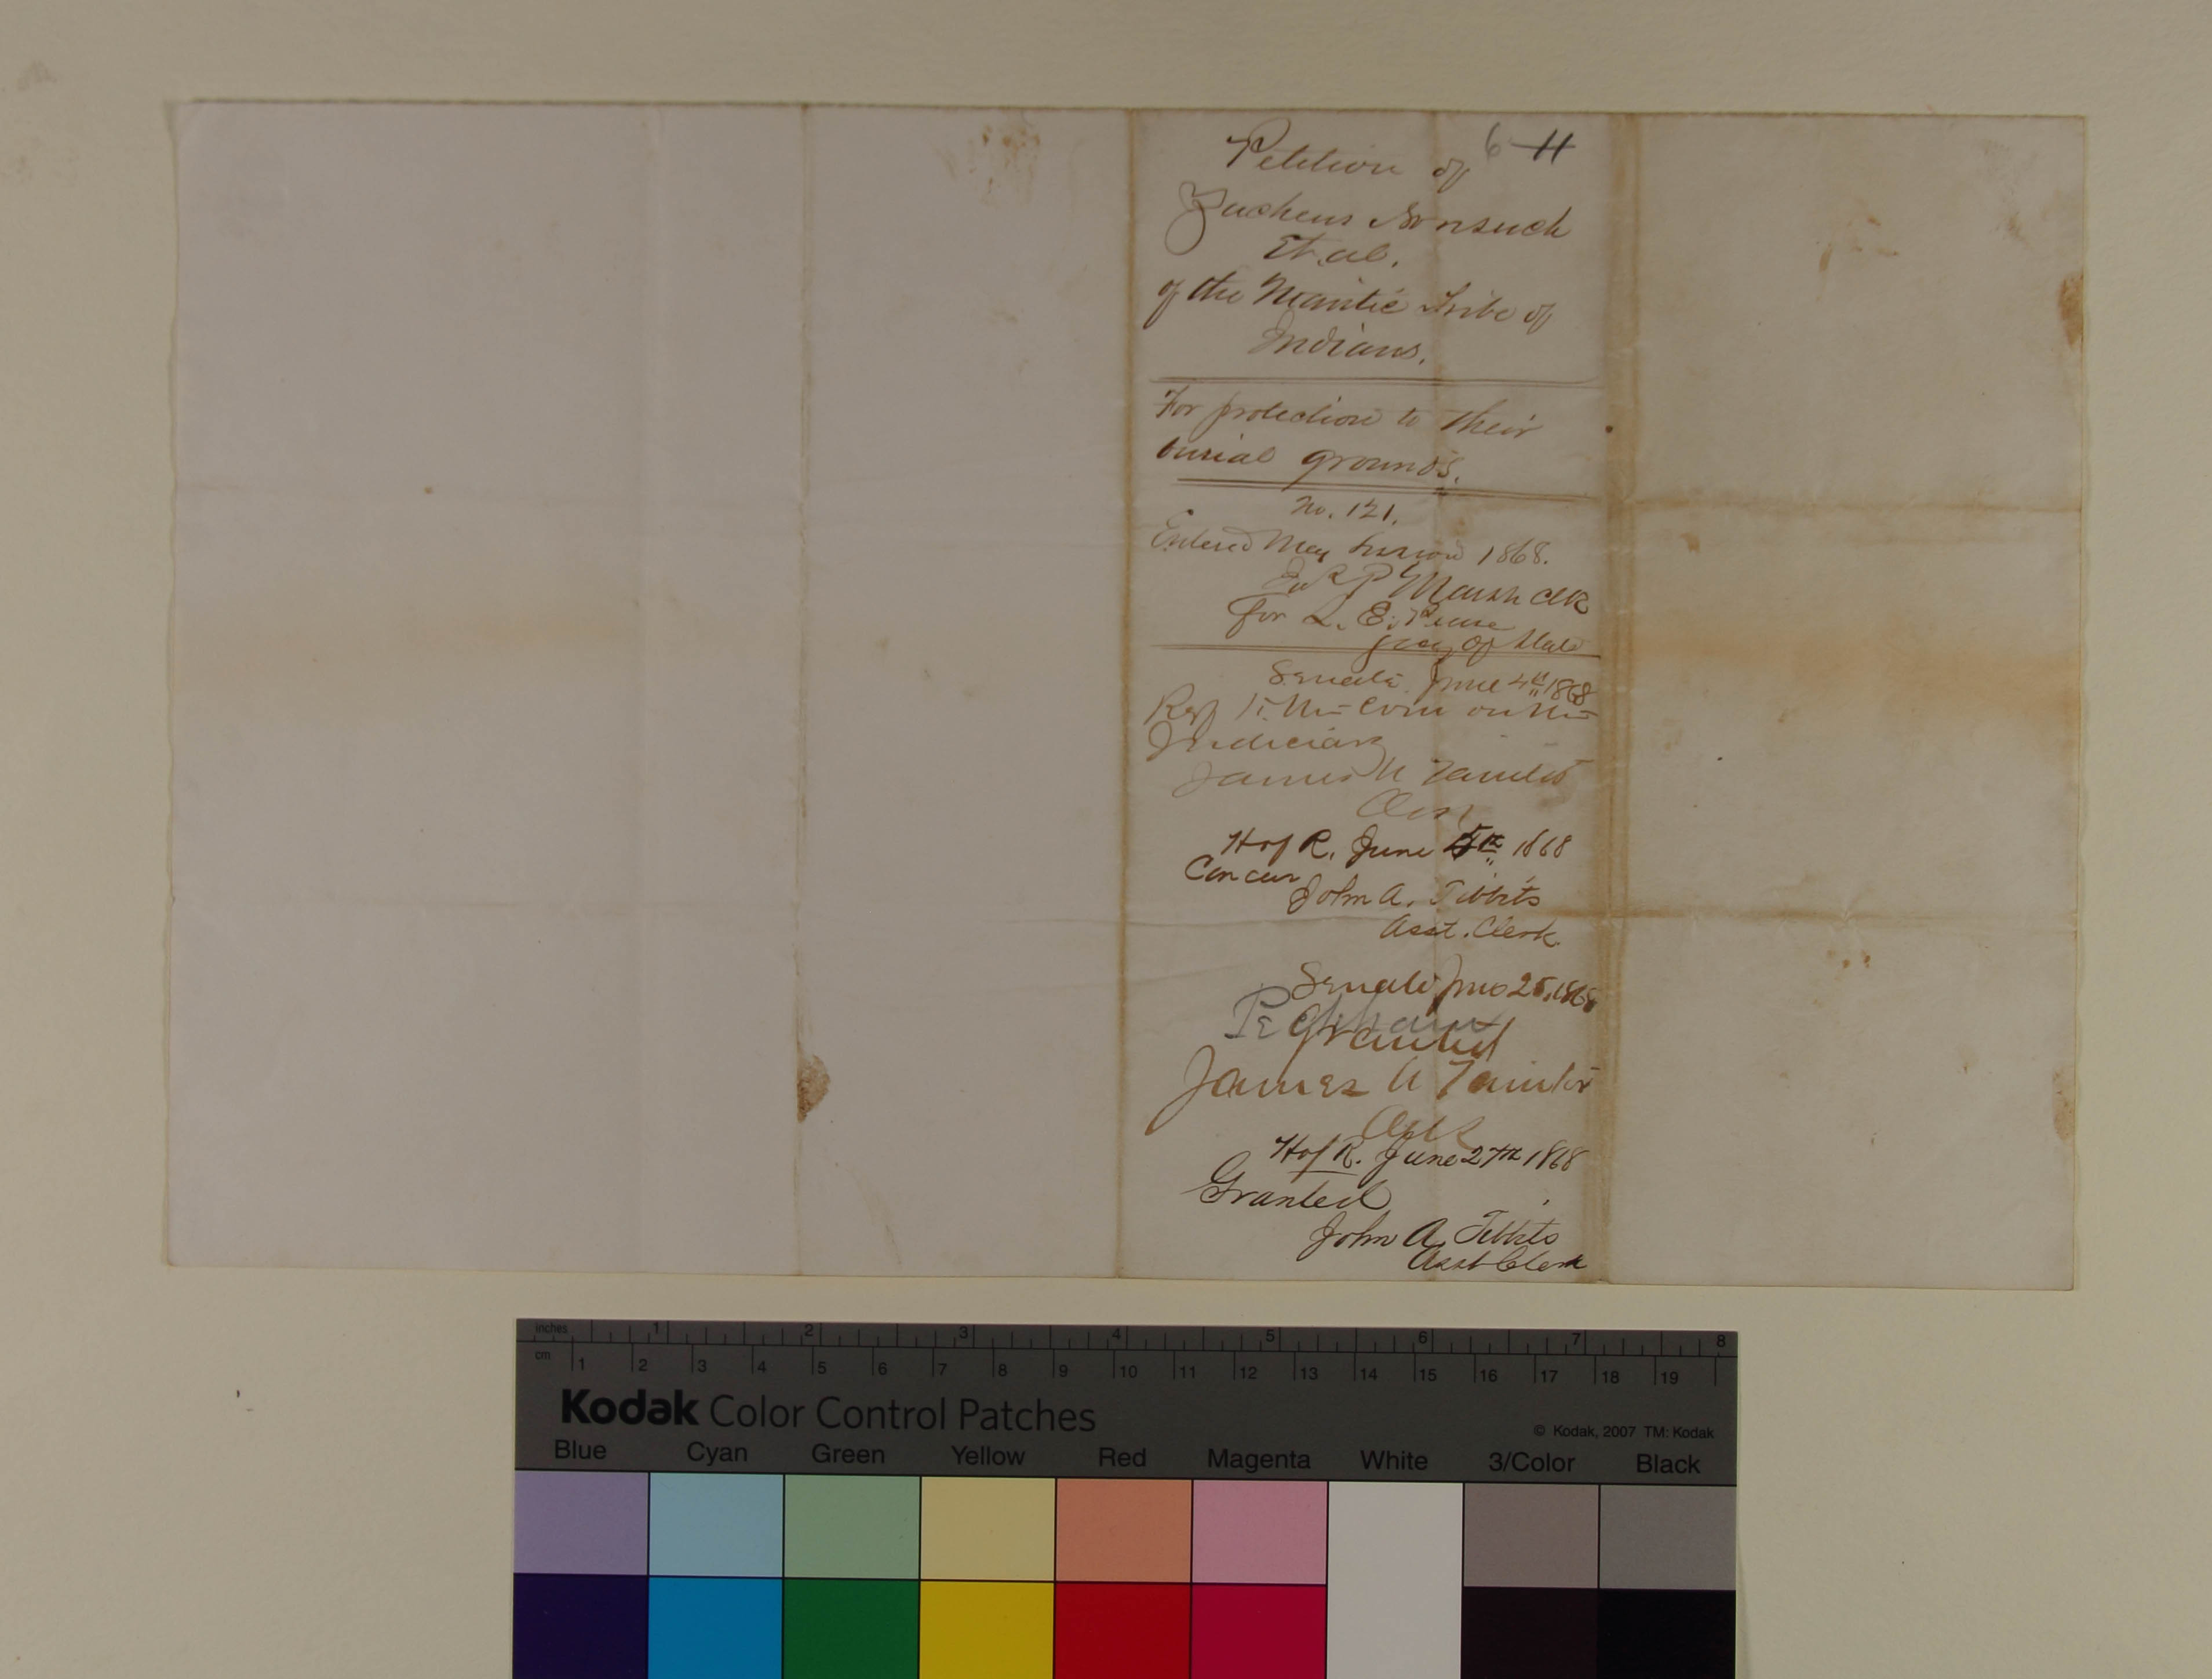 Petition of 6 11
Zacheus Nonsuch
Et. al.
of the Niantic Tribe of
Indians.
For protection to their
burial grounds.
No. 121.
Entered May Session 1868.
P Marsh Clk
for L. E. Pease
Secy of State
Senate June 4th 1868
Ref to the Com on the
Judiciary
James U Taintor
Clk
H of R. June 5th 1868
Concur
John A. Tibbits
Asst. Clerk.
Senate June 25, 1868
Granted
James U Taintor
Clk
H of R. June 27th 1868
Granted
John A. Tibbits
Asst Clerk
inches 1 2 3 4 5 6 7 8
cm 1 2 3 4 5 6 7 8 9 10 11 12 13 14 15 16 17 18 19
Kodak Color Control Patches
© Kodak, 2007 TM: Kodak
Blue Cyan Green Yellow Red Magenta White 3/Color Black